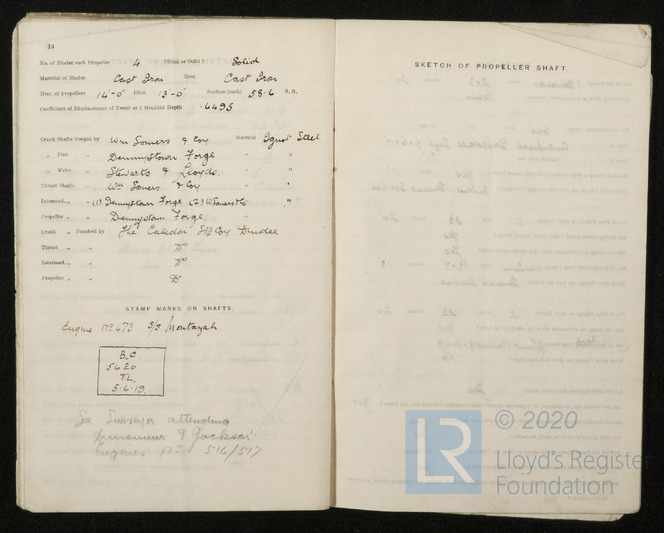 14
No. of Blades each Propeller 4 Fitted or Solid? Solid
Material of Blades Cast Iron Boss Cast Iron
Diar. of Propellers 14'-0" Pitch 13'-0" Surface (each) 58.6 S. ft.
Coefficient of Displacement of Vessel at ¾ Moulded Depth .6495
Crank Shafts Forged by Wm Somers & Coy Material Ingot Steel
„ Pins „ Dennystown Forge „ „
„ Webs „ Stewarts & Lloyds. „ „
Thrust Shafts „ Wm Somers & Coy „ „
Intermed. „ „ (1) Dennystown Forge (2) W Somers & Co „ „
Propeller „ „ Dennystown Forge.
Crank „ Finished by The Caledon SB Coy Dundee
Thrust „ „ Do
Intermed. „ „ Do
Propeller „ „ Do
STAMP MARKS ON SHAFTS.
Engine No 473 S/S Montazah
B.C.
5420
T.L.
5-6-19.
See Surveyor attending
& Jackson
Engines Nos 516/517
SKETCH OF PROPELLER SHAFT.
© 2020
LR
Lloyd's Register
Foundation